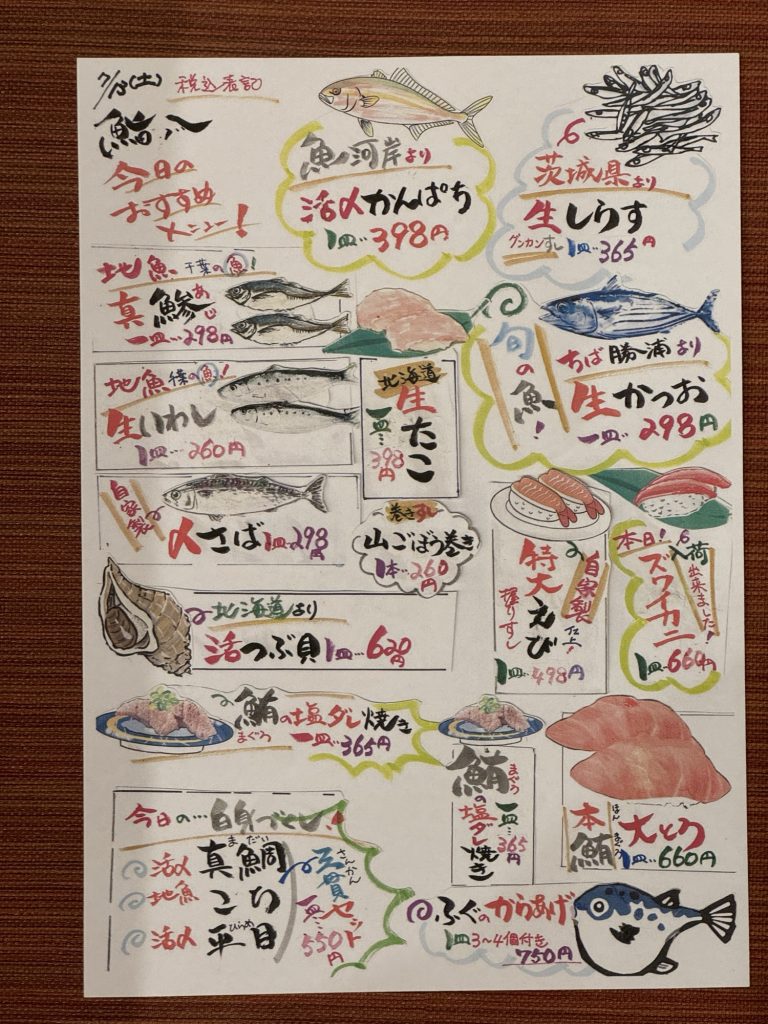 7/13(土) 税込表記
鮨八
今日の
おすすめ
メニュー!
魚河岸より
活〆かんぱち
1皿…398円
茨城県より
生しらす
グンカンすし 1皿…365円
地魚 千葉の魚!
真鯵 あじ
一皿…298円
地魚 千葉の魚!
生いわし
1皿…260円
北海道
生たこ
一皿…398円
旬の魚!
ちば勝浦より
生かつお
一皿…298円
自家製
〆さば 1皿…298円
巻きずし
山ごぼう巻き
1本…260円
自家製 仕上!
特大えび
握りずし
1皿…498円
本日!入荷
出来ました!
ズワイカニ
1皿…664円
北海道より
活つぶ貝 1皿…620円
鮪の塩ダレ焼き
まぐろ 一皿…365円
鮪の塩ダレ焼き
まぐろ
一皿…365円
本鮪 大とろ
ほんまぐろ
1皿…660円
今日の…白身づくし!
活〆 真鯛 まだい
地魚 こち
活〆 平目 ひらめ
三貫セット さんかん
一皿…550円
ふぐのからあげ
1皿3〜4個付き
750円